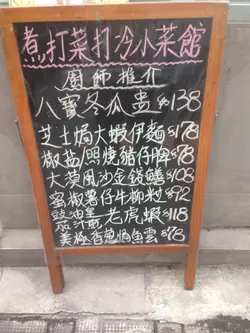 煮打菜打冷小菜館
廚師推介
八寶冬瓜盅 $138
芝士焗大蝦伊麵 $178
椒鹽/照燒豬仔脾 $78
大漠風沙金鍋鱔 $108
蜜椒薯仔牛柳粒 $92
豉油皇
茄汁煎 老虎蝦 $118
美極香蔥焗魚雲 $78